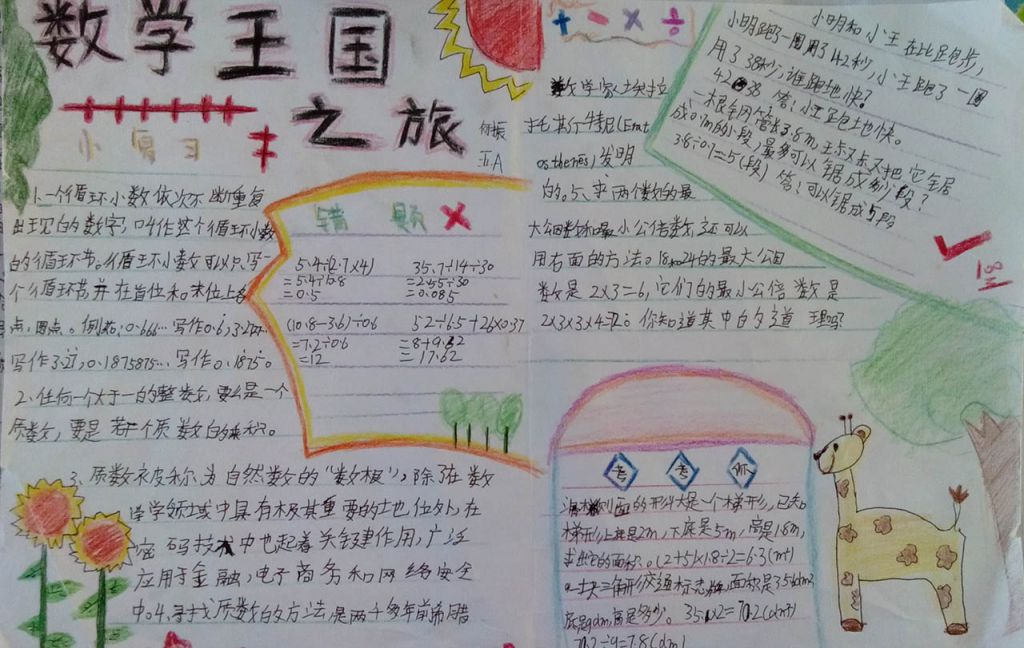 数学王国
之旅
小复习
五.A
1.一个循环小数依次不断重复
出现的数字,叫作这个循环小数
的循环节。循环小数可以只写一
个循环节并在首位和末位上各
点,圆点。例如:0.666…写作0.6,3.2727…
写作3.27,0.1875875…写作0.1875。
2、任何一个大于一的整数,要么是一个
质数,要是若干个质数的乘积。
3、质数被称为自然数的“数根”,除了在数
学领域中具有极其重要的地位外,在
密码技术中也起着关键作用,广泛
应用于金融,电子商务和网络安全
中。4.寻找质数的方法是两千多年前希腊
错题×
5.4÷(2.7×4)
=5.4÷10.8
=0.5
35.7÷14÷30
=2.55÷30
=0.085
(10.8-3.6)÷0.6
=7.2÷0.6
=12
52÷6.5+26×0.37
=8+9.62
=17.62
+ - × ÷
数学家埃拉
托其个特尼(Erat
osthenes)发明
的。5、求两个数的最
大公因数和最小公倍数,还可以
用右面的方法。18和24的最大公因
数是2×3=6,它们的最小公倍数是
2×3×3×4=72。你知道其中的道理吗
小明和小王在比跑步,
小明跑了一圈用了42秒,小王跑了一圈
用了38秒,谁跑地快?
42 38 答:小王跑地快。
一根钢管长3.6m,王叔叔把它锯
成0.7m的小段,最多可以锯成多少段?
3.6÷0.7=5(段) 答:可以锯成5段
考考你
面的形状是一个梯形,已知
梯形上底是2m,下底是5m,高是1.8m,
求它的面积。(2+5)×1.8÷2=6.3(m²)
一块三角形交通标志牌面积是35.1dm²
底是9dm,高是多少。35.1×2=70.2(dm²)
70.2÷9=7.8(dm)